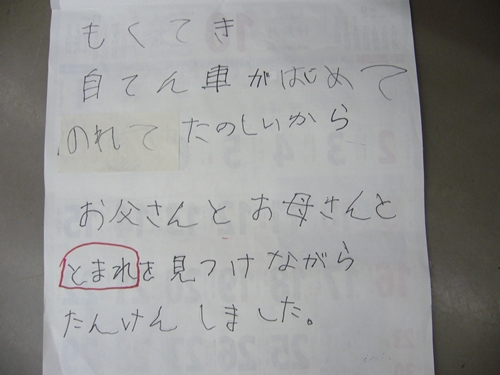 もくてき
自てん車がはじめて
のれて たのしいから
お父さんと お母さんと
とまれを見つけながら
たんけん しました。